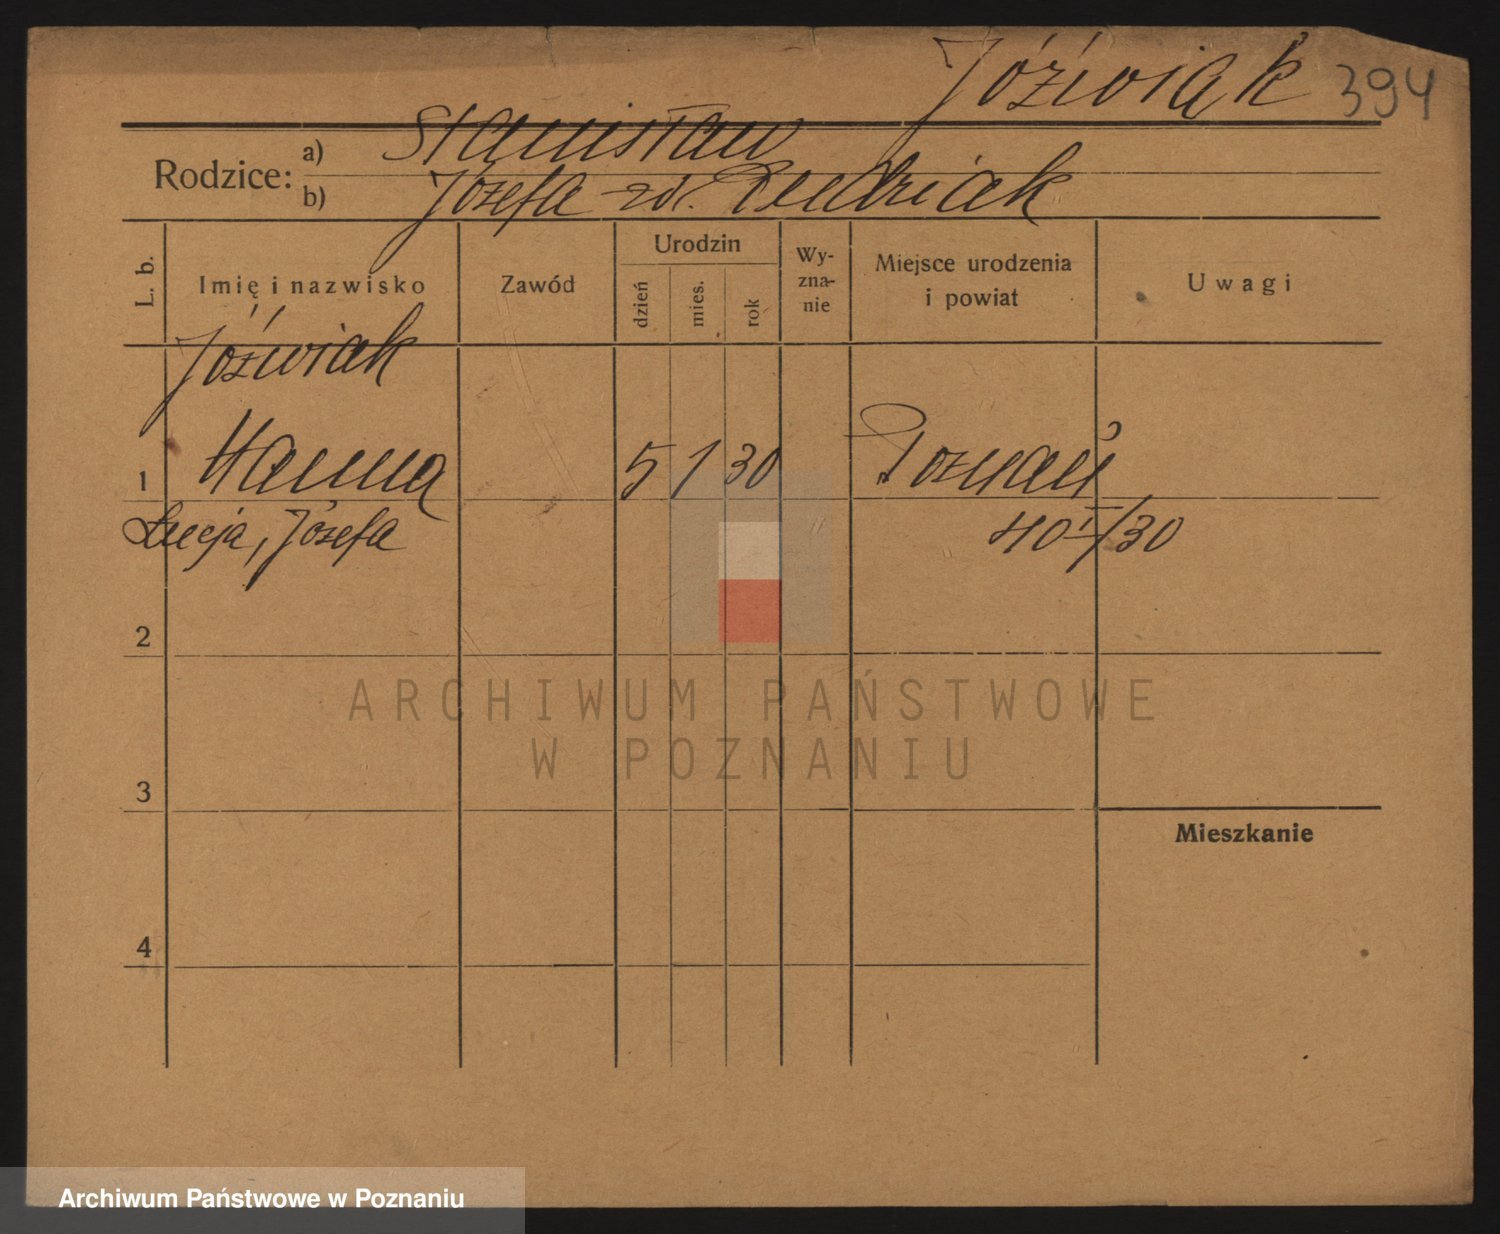 Jóźwiak 394
Rodzice: a) Stanisław
b) Józefa zd.
L. b. Imię i nazwisko Zawód Urodzin dzień mies. rok Wy-zna-nie Miejsce urodzenia i powiat Uwagi
Jóźwiak
1 Hanna 5 1 30 Poznań
Łucja, Józefa 40 I/30
2
3
Mieszkanie
4
ARCHIWUM PAŃSTWOWE
W POZNANIU
Archiwum Państwowe w Poznaniu